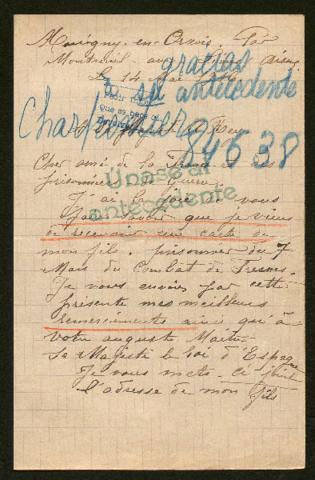 Marigny-en-Orxois, Par
Montreuil aux Lions, Aisne
Le 14 Mai
gracias
a su antecedente
Charpentier
84638
Unase al
antecedente
Cher ami de la France et des
prisonniers de Guerre
J'ai la joie de vous
faire savoir que je viens
de recevoir une carte de
mon fils, prisonnier du 7
Mars du Combat de
Je vous envoies par cette
présente mes meilleurs
remerciments ainsi qu'à
votre auguste Maitre
Sa Majesté le Roi d'Espagne
Je vous mets ci joint
l'adresse de mon fils